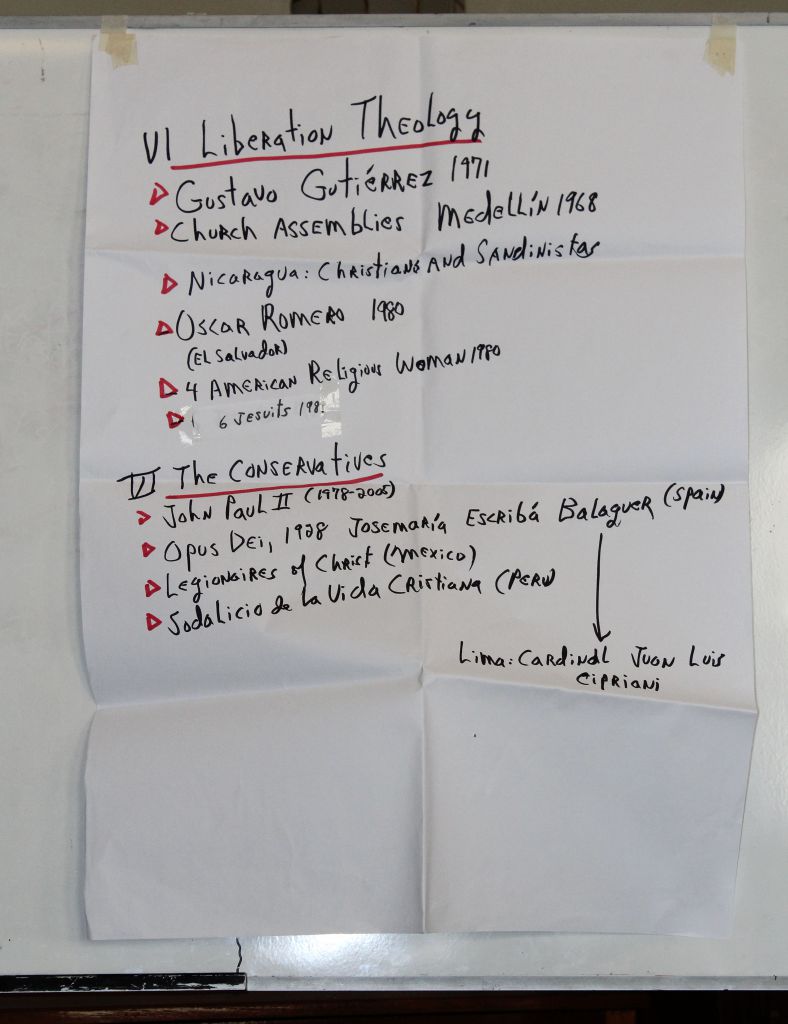 VI Liberation Theology
Gustavo Gutiérrez 1971
Church Assemblies Medellín 1968
Nicaragua: Christians and Sandinistas
Oscar Romero 1980
(El Salvador)
4 American Religious Woman 1980
6 Jesuits 198
The Conservatives
John Paul II (1978-2005)
Opus Dei, 1928 Josemaría Escribá Balaguer (Spain)
Legionaires of Christ (Mexico)
Sodalicio de la Vida Cristiana (Peru)
Lima: Cardinal Juan Luis
Cipriani